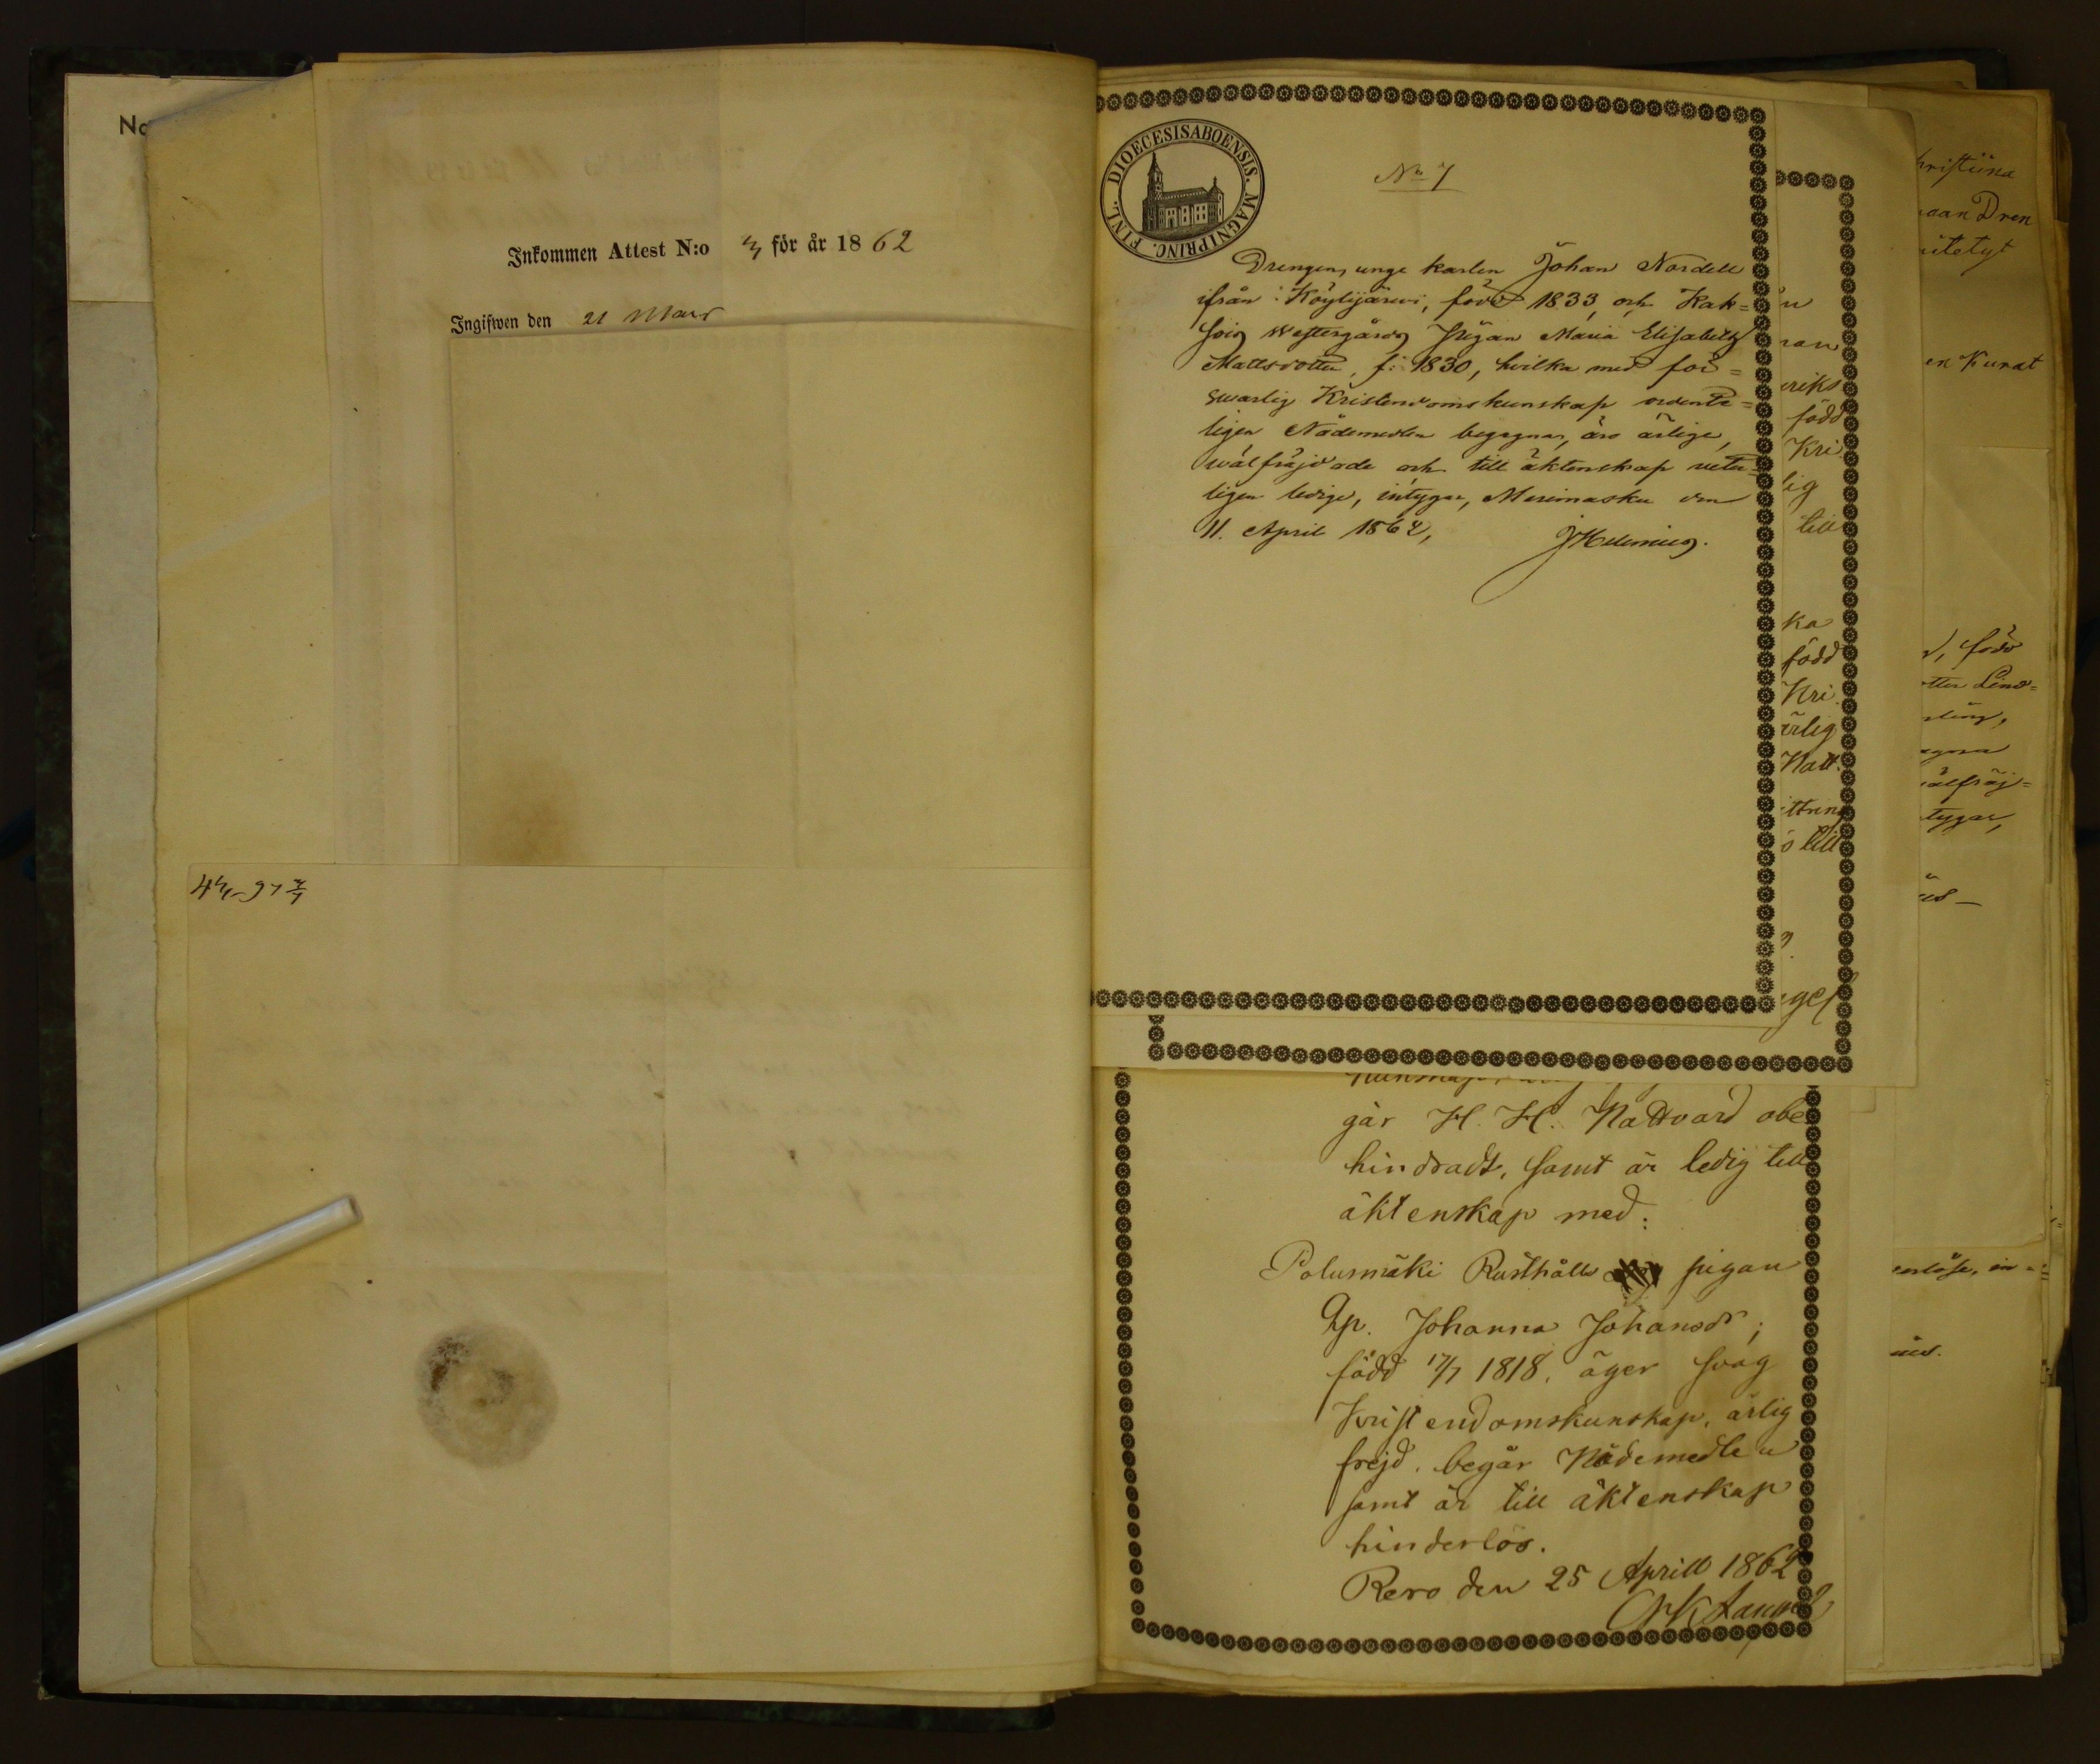 No
Inkommen Attest N:o 3 för år 1862
Ingifwen den 21 Mars
DIOECESIS ABOENSIS. MAGNI PRINC. FINL.
No 7
Drengen, unge karlen Johan Nordell
ifrån Köylijärwi, född 1833, och Kak=
Westergårds Pigan Maria Elisabeth
Mattsdotter, f: 1830, hvilka med för=
swarlig Kristendomskunskap ordent=
ligen Nådemedlen begagnar, äro ärlige,
wälfräjdade och till äktenskap veter=
ligen ledige, intygar, Merimasku den
11. April 1862, JHelenius.
går H. H. Nattvard obe
hindradt, samt är ledig till
äktenskap med:
Polusmäki Rusthålls pigan
Johanna Johansdr;
född 17/7 1818, äger svag
kristendomskunskap, ärlig
frejd, begår Nådemedlen
samt är till äktenskap
hinderlös.
Reso den 25 Aprill 1862
riks
född
Kri
lig
till
ka
född
Kri
ärlig
Natt
till
hristiina
aan Dren
en Kunat
född
tter Lind=
älfräj=
tygar,